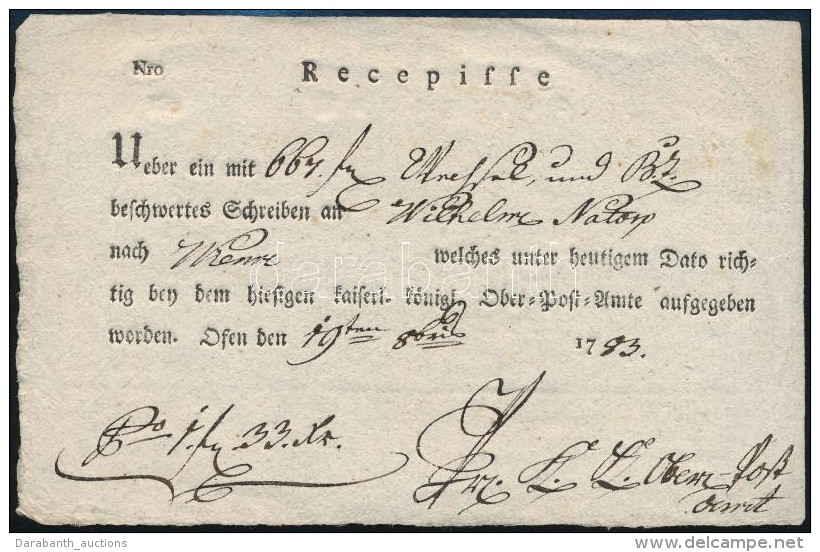 Nro Recepisse
Ueber ein mit 667. fl Wechsel, und B.Z.
beschwertes Schreiben an Wilhelm Natorp
nach Wienn welches unter heutigem Dato rich-
tig bey dem hiesigen kaiserl. königl. Ober-Post-Amte aufgegeben
worden. Ofen den 19ten 8bris 1783.
Pto 1. fl 33. Xr.
K. K. Ober-Post
amt
darabanth
Darabanth_auctions
delcampe.net